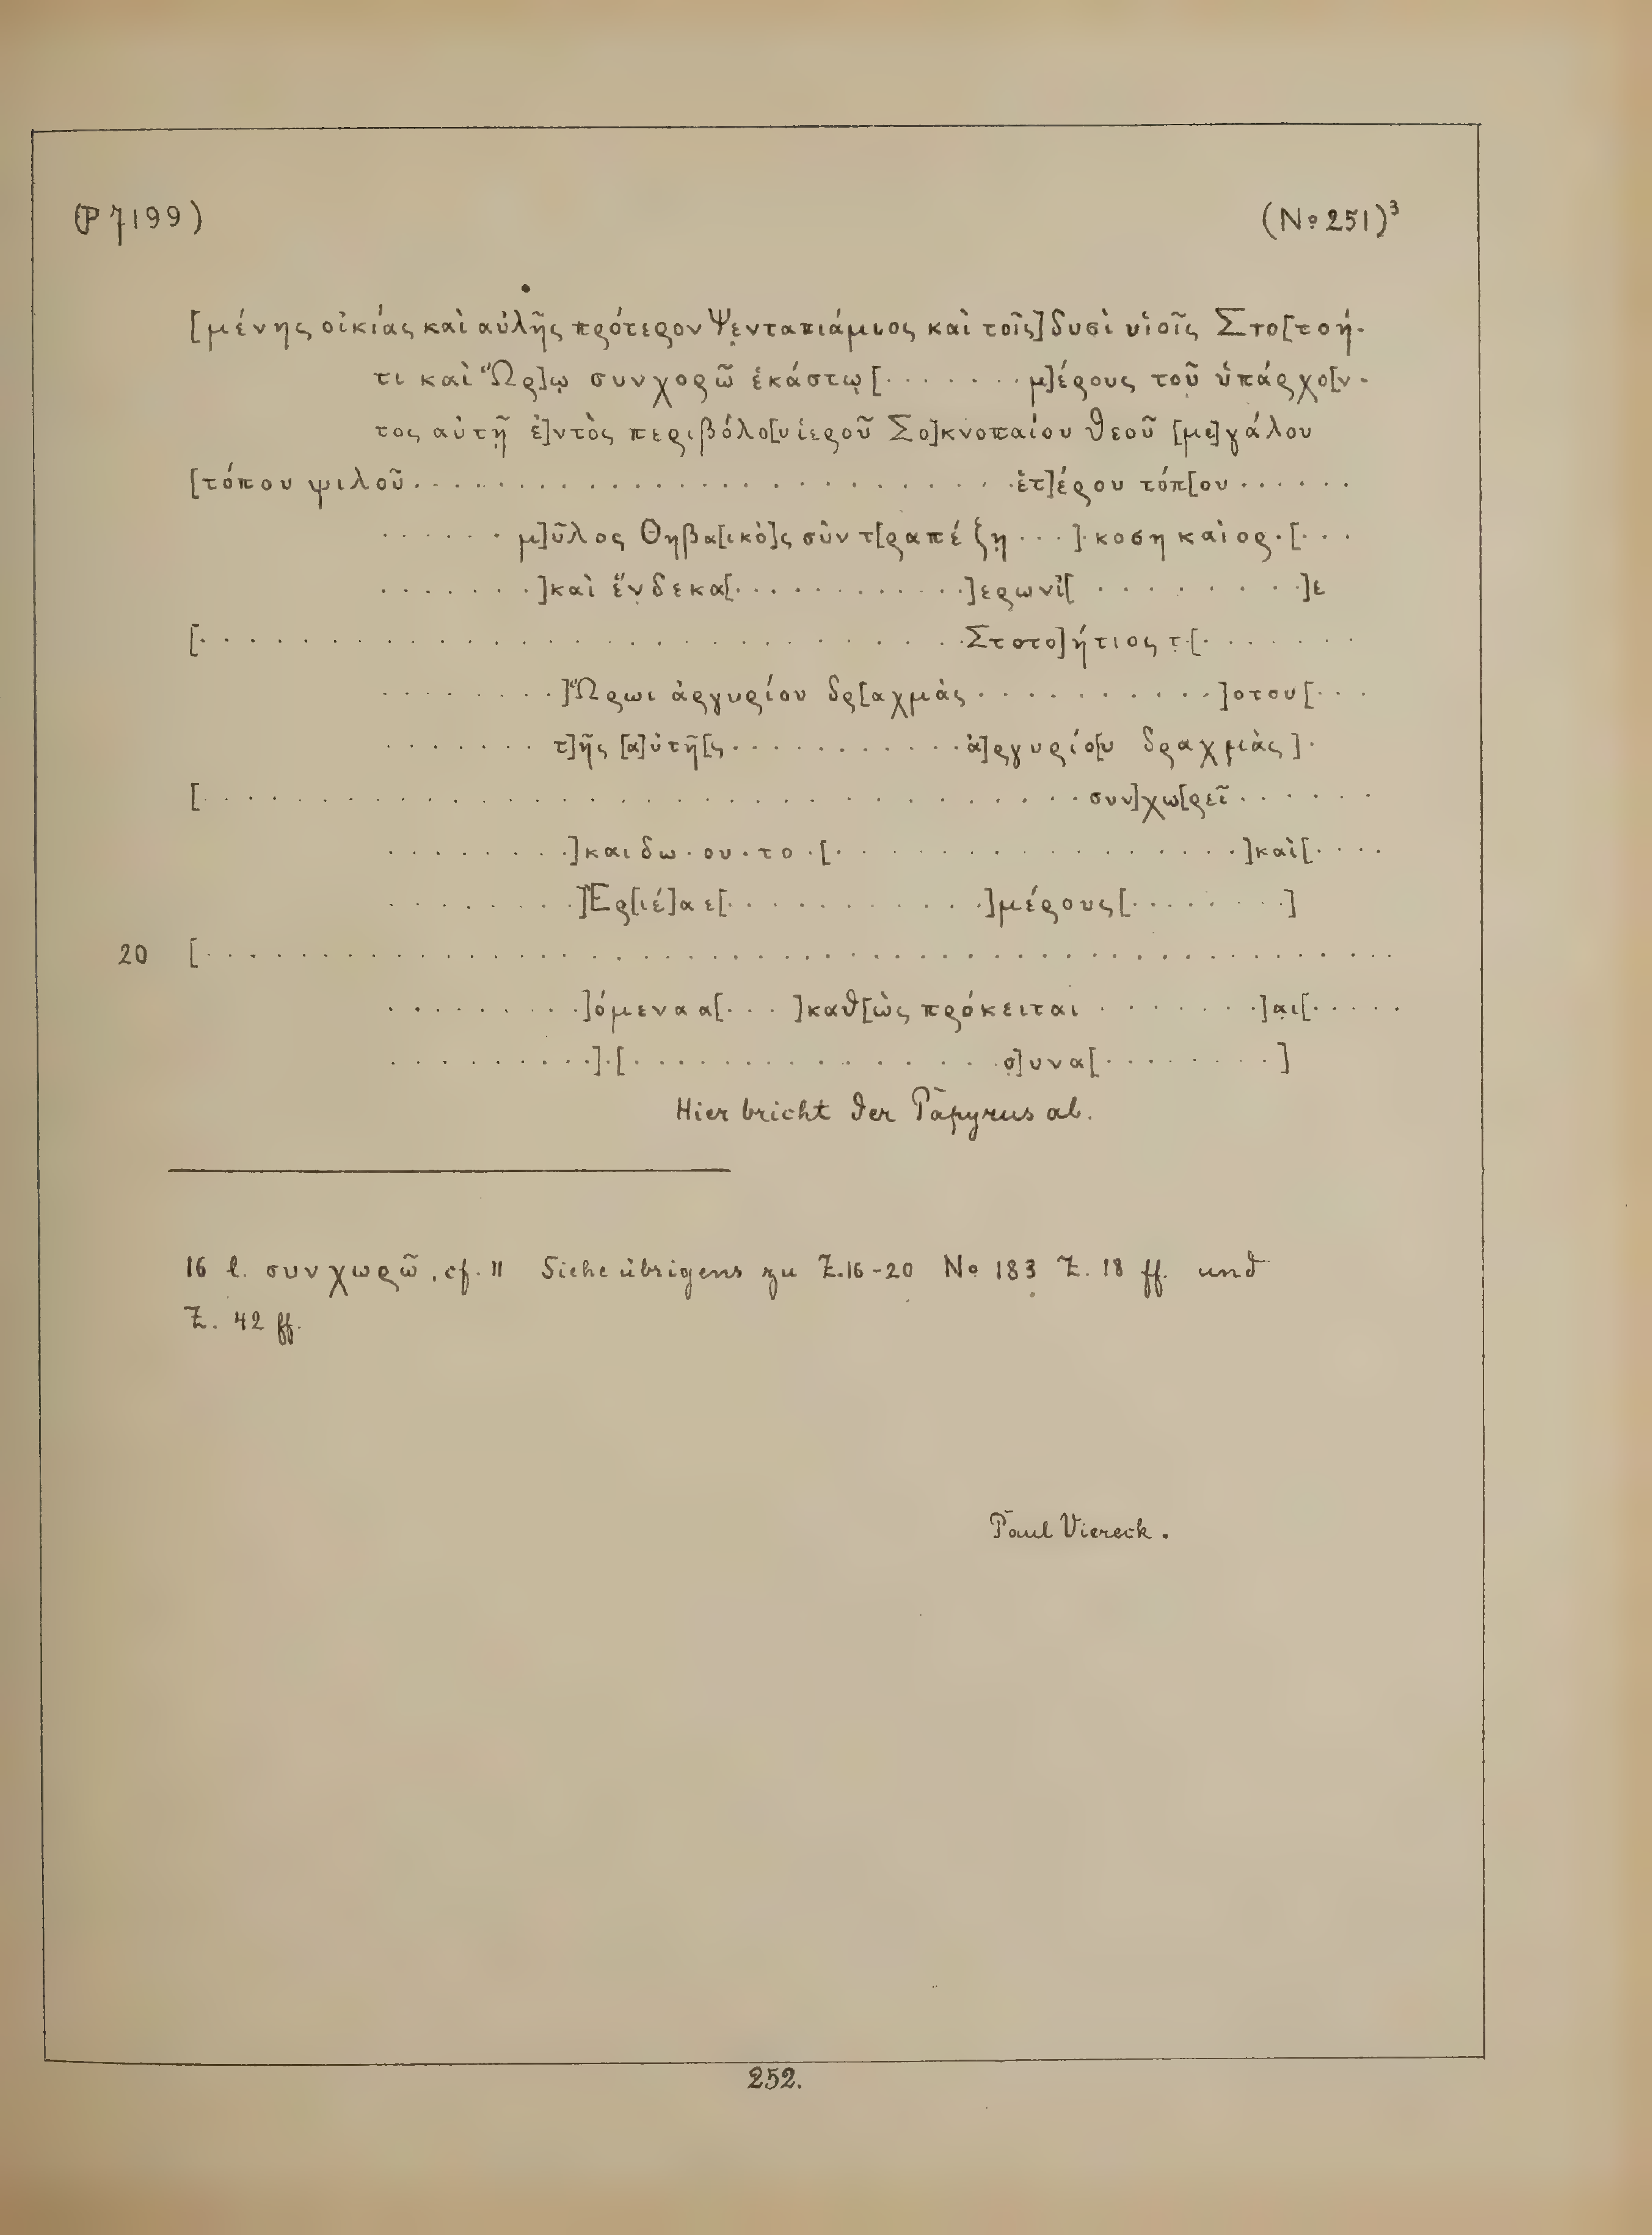 (P 7199) (No 251)³
[μένης οἰκίας καὶ αὐλῆς πρότερον Ψενταπιάμιος καὶ τοῖς] δυσὶ υἱοῖς Στο[τοή-
τι καὶ Ὥρ]ῳ συνχορῶ ἑκάστῳ [. . . . . . . μ]έρους τοῦ ὑπάρχο[ν-
τος αὐτῇ ἐ]ντὸς περιβόλο[υ ἱεροῦ Σο]κνοπαίου θεοῦ [με]γάλου
[τόπου ψιλοῦ. . . . . . . . . . . . . . . . . . . . . . . . ἑτ]έρου τόπ[ου . . . . . .
. . . . . . μ]ῦλος Θηβα[ικὸ]ς σὺν τ[ραπέζῃ . . . ] . κοση καὶ ος . [. . .
. . . . . . . ]καὶ ἕνδεκα[. . . . . . . . . . . . ]ερωνὶ[ . . . . . . . . ]ε
[. . . . . . . . . . . . . . . . . . . . . . . . . . . . Στοτο]ήτιος τ[. . . . . . .
. . . . . . . . ]Ὥρωι ἀργυρίου δρ[αχμὰς . . . . . . . . . . ]οτου[. . .
. . . . . . . τ]ῆς [α]ὐτῆ[ς. . . . . . . . . . . ἀ]ργυρίο[υ δραχμὰς ] .
[. . . . . . . . . . . . . . . . . . . . . . . . . . . . . . συν]χω[ρεῖ . . . . . .
. . . . . . . . ]και δω . ου . το . [. . . . . . . . . . . . . . . . ]καὶ[. . . .
. . . . . . . . ]Ἐρ[ιέ]α ε[. . . . . . . . . . . . ]μέρους[. . . . . . . ]
20 [. . . . . . . . . . . . . . . . . . . . . . . . . . . . . . . . . . . . . .
. . . . . . . . . ]όμενα α[. . . ]καθ[ὼς πρόκειται . . . . . . . ]αι[. . . . .
. . . . . . . . . . ] . [. . . . . . . . . . . . . . σ]υνα[. . . . . . . . ]
Hier bricht der Papyrus ab.
16 l. συνχωρῶ, cf. 11 Siehe übrigens zu Z.16-20 No 183 Z. 18 ff. und
Z. 42 ff.
Paul Viereck.
252.